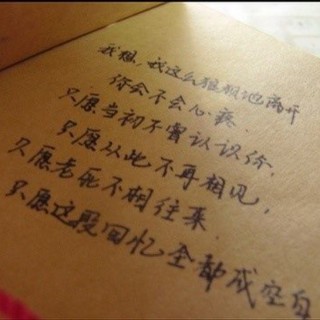 我想，我这么狼狈地离开
你会不会心疼.
只愿当初不曾认识你.
只愿从此不再相见，
只愿老死不相往来.
只愿这段回忆全部成空白